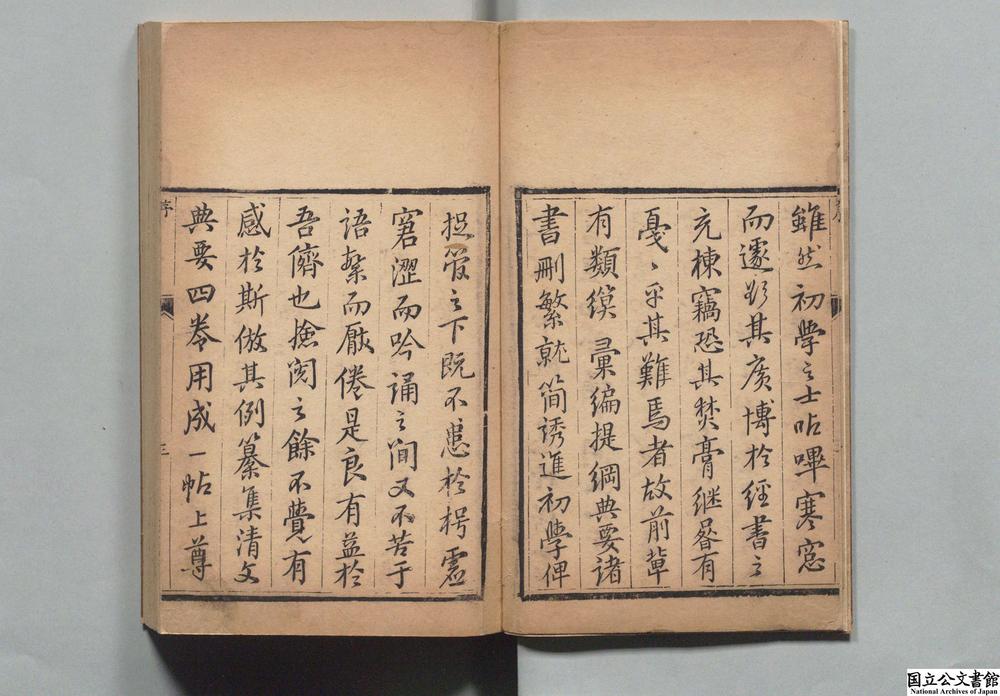 雖然初學之士呫嗶寒窓
而遽欲其廣博於經書之
充棟竊恐其焚膏継晷有
戞〻乎其難焉者故前軰
有類纂彙編提綱典要諸
書刪繁就简誘進初學俾
捉管之下既不患於枵虛
窘澀而吟誦之间又不苦于
語繁而厭倦是良有益於
吾儕也撿閱之餘不覺有
感於斯倣其例纂集清文
典要四卷用成一帖上尊
序
三
国立公文書館
National Archives of Japan